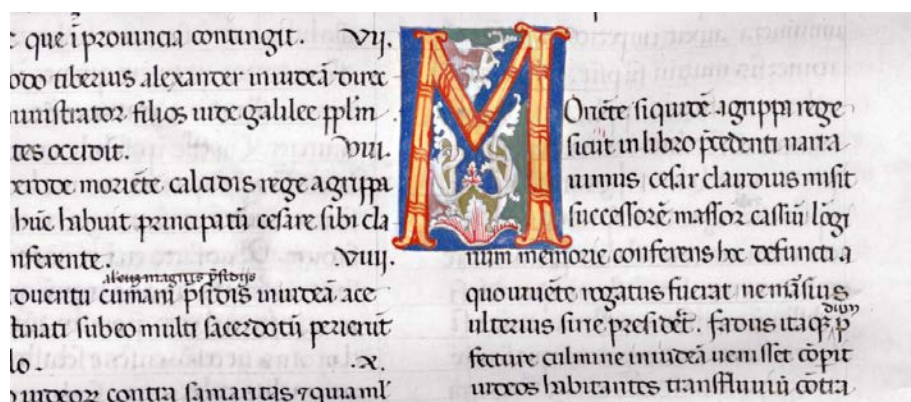 que ī prouincia contingit. VII.
odo tiberius alexander in iudeā direc
ministrator filios iude galilee ppl̄m
tes occidit. VIII.
erode moriēte calcidis rege agrippa
huic habuit principatū cesare sibi cla
nferente. VIIII.
cumani p̄sidis in iudeā
tinati sub eo multi sacerdotū perierit
lo. X.
iudeor contra samaritas ⁊ quam
M Oriēte siquidē agrippa rege
sicut in libro p̄cedenti narra
uimus cesar claudius misit
successorē massor cassiū lōgi
num memorie conferens hec defuncti a
quo uiuēte rogatus fuerat ne marsus
ulterius sirie presidet. fadus itaq;
fecture culmine in iudeā uenisset cōpit
iudeos habitantes trans fluuiū cōtra